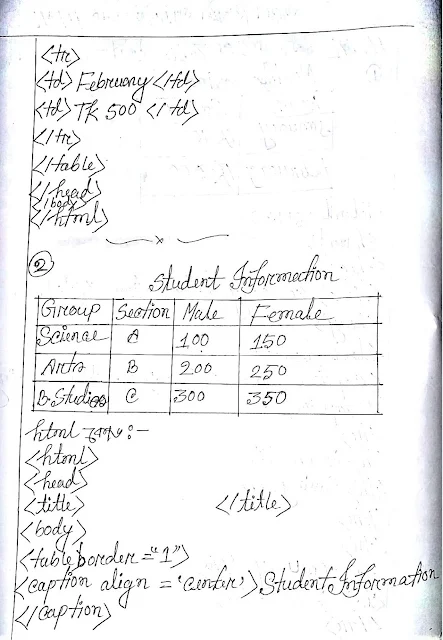 <tr>
<td> February </td>
<td> TK 500 </td>
</tr>
</table>
</head>
</body>
</html>
x
2
Student Information
Group Section Male Female
Science A 100 150
Arts B 200 250
B.Studies C 300 350
html কোড :-
<html>
<head>
<title> </title>
<body>
<table border="1">
<caption align = 'center'> Student Information
</caption>